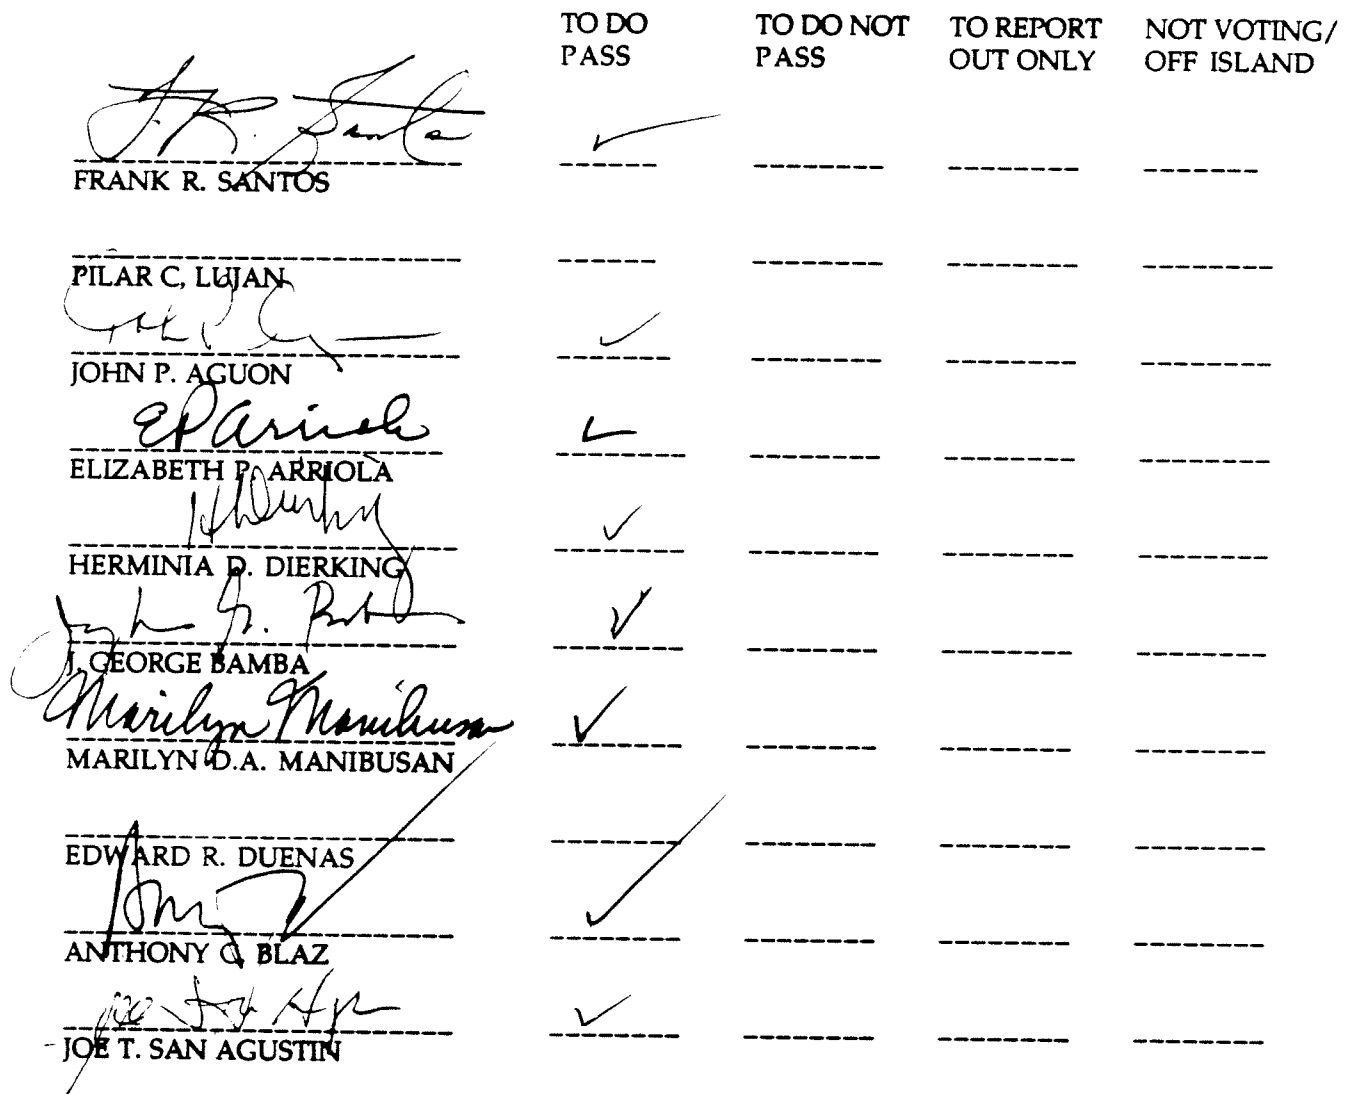 TO DO PASS TO DO NOT PASS TO REPORT OUT ONLY NOT VOTING/ OFF ISLAND
F. R. Santos ✓
FRANK R. SANTOS
PILAR C, LUJAN
✓
JOHN P. AGUON
EP Arriola ✓
ELIZABETH P. ARRIOLA
HDDierking ✓
HERMINIA D. DIERKING
✓
J. GEORGE BAMBA
Marilyn Manibusan ✓
MARILYN D.A. MANIBUSAN
EDWARD R. DUENAS
✓
ANTHONY C. BLAZ
✓
JOE T. SAN AGUSTIN